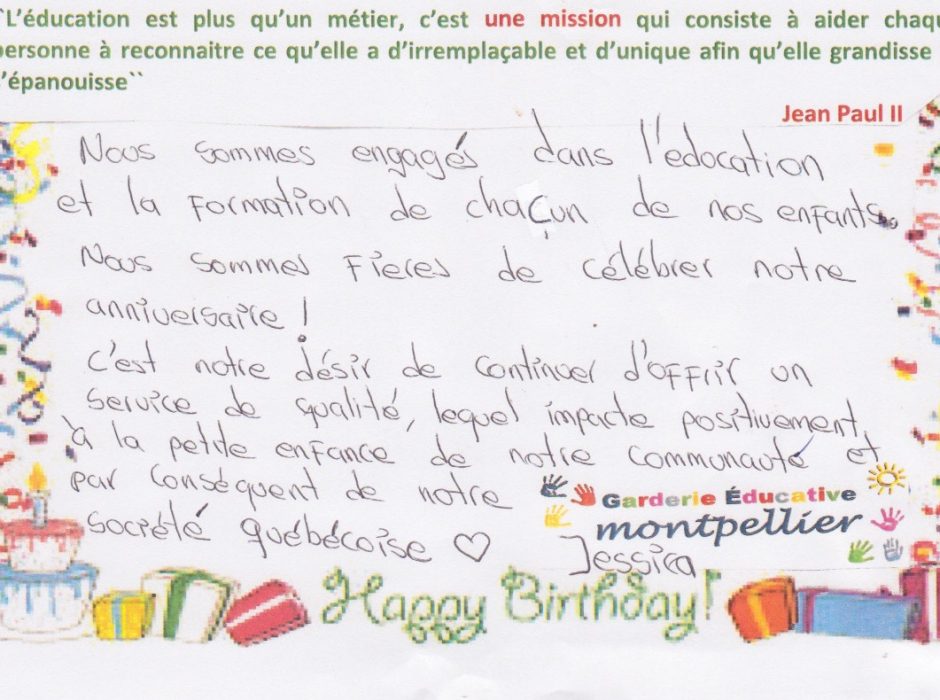 ``L'éducation est plus qu'un métier, c'est une mission qui consiste à aider chaqu
personne à reconnaitre ce qu'elle a d'irremplaçable et d'unique afin qu'elle grandisse
s'épanouisse``
Jean Paul II
Nous sommes engagés dans l'edocation
et la formation de chaçun de nos enfants.
Nous sommes fieres de célébrer notre
anniversaire !
C'est notre désir de continuer d'offrir un
service de qualité, lequel impacte positivement
à la petite enfance de notre communauté et
par conséquent de notre
société québécoise ♡
Garderie Éducative
montpellier
Jessica
Happy Birthday!